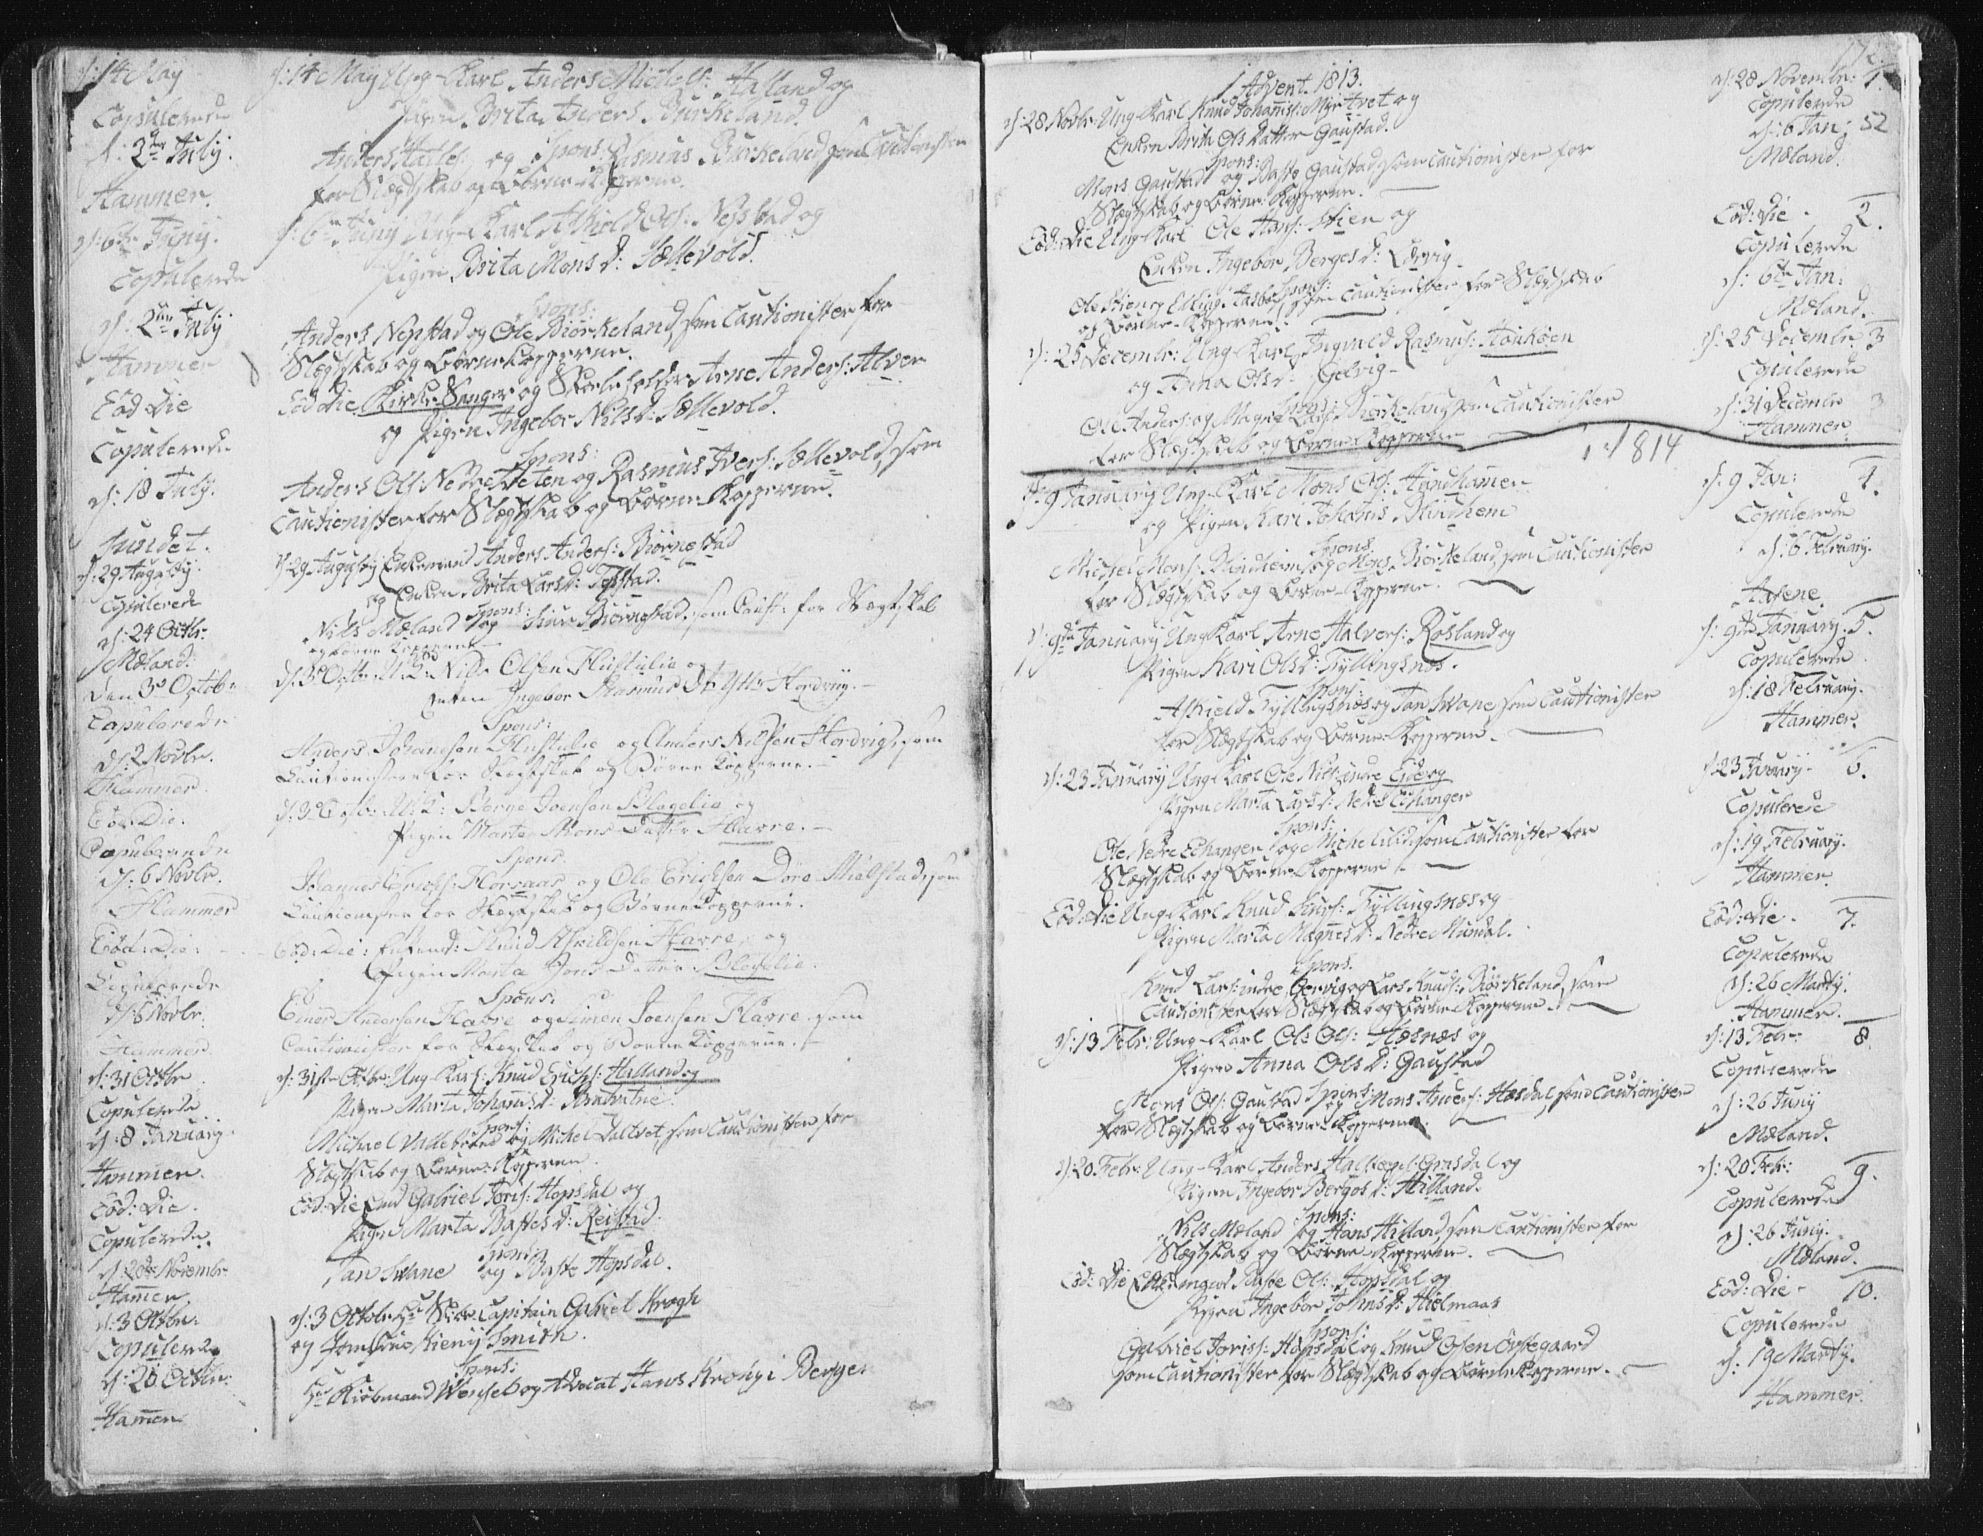 d: 14 May
Copulerede
d: 2den July.
Hammer.
d: 6te Juny.
Copulerede
d: 2den July
Hammer
Eod Die
Copulerede
d: 18 July.
Sundet.
d: 29 Augusty.
Copulerede
d: 24 Octbr.
Mæland:
Den 3de Octobr
Copulerede
d: 2 Novbr.
Hammer.
Eod: Die:
Copulerede
d: 6 Novbr.
Hammer
Eod: Die:
Copulerede
d: 6 Novbr.
Hammer
d: 31 Octbr
Copulerede
d: 8 January.
Hammer.
Eod: Die.
Copulerede.
d: 20de Novembr.
Hamer.
d: 3 Octbr:
Copulerede
d: 20 Octbr:
Hamer
d: 14 May Ung-Karl Anders Michels: Halland og
Pigen Brita Anders Burkeland.
Spons:
Anders Hatles: og Rasmus Burkeland som Cautionister
for Slægtskab og Børne-Kopperne.
d: 6te Juny Ung-Karl Askild Ols: Nepstad og
Pigen Brita Monsd: Sællevold.
Spons:
Anders Nepstad og Ole Biørkeland, som Cautionister for
Slægtskab og Børne Kopperne.
Eod Die Kirke-Sanger og Skoleholder Arne Anders: Alver
og Pigen Ingebor Nilsd: Sællevold.
Spons:
Anders Ols: Nedre Tveten og Rasmus Ivers: Sællevold, som
Cautionister for Slægtskab og Børne-Kopperne.
d: 29 Augusty Enkemand Anders Anders: Biørnestad
og Enken Brita Larsd: Tofstad.
Spons:
Nils Mæland og Siur Biørnestad, som Caut: for Slægtskab
og Børne Kopperne
d: 3de Octbr. U: K: Nils Olsen Hustulie og
Enken Ingebor Rasmus D: Ytre Hordvig.
Spons:
Anders Johannesen Hustulie og Anders Nilsen Hordvig, som
Cautionister for Slegtskab og Børne Kopperne.
d: 3de Octb: U: K: Børge Joensen Blogelie og
Pigen Marta Mons Datter Flavre.
Spons.
Johannes Erichs: Horsaas og Ole Erichsen Døro Mielstad, som
Cautionister for Slegtskab og Børne Kopperne.
Eod: Die: Enkemd: Knud Askildsen Flavre og
Pigen Marta Joens Datter Blogelie.
Spons:
Einer Andersen Flavre og Simen Joensen Flavre som
Cautionister for Slegtskab og Børne Kopperne.
d: 31te Octbr Ung-Karl: Knud Erichs: Halland og
Pigen Marta Johansd: Brudvatne.
Spons:
Michael Valdebrend og Michel Daltvet, som Cautionister for
Slægtskab og Børne-Kopperne.
Eod: Die Emd Gabriel Joris: Hopsdal og
Pigen Marta Bastesd: Reistad.
Spons:
Jan Svane og Baste Hopsdal.
d: 3 Octobr Hr Skibs Capitain Gabriel Krogh
og Jomfrue Kieniy Smith.
Spons:
Hr Kiøbmand Wensel og Advocat Hans Krohg i Bergen
172.
1 Advent 1813.
d: 28 Novbr Ung-Karl Knud Johannis: Myrtvet og
Enken Brita Ols Datter Gaustad.
Spons:
Mons Gaustad og Baste Gaustad, som Cautionister for
Slægtskab og Børne-Kopperne.
Eod: Die Ung-Karl Ole Hans: Stien og
Enken Ingebor Bergesd: Løvvig
Spons:
Ole Stien og Elling Aasbøe, som Cautionister for Slægtskab
og Børne-Kopperne.
d: 25 Decembr: Ung-Karl Ingvald Rasmus: Høukøen
og Anna Olsd: Gelvig
Spons:
Ole Anders: og Magne Lars: Biørkeland som Cautionister
for Slægtskab og Børne Kopperne
1814
d: 9 January Ung-Karl Mons Ols: Haudhamer
og Pigen Kari Johanis Blindhem
Spons
Michel Mons: Blindheim og Mons Biørkeland, som Cautionister
for Slægtskab og Børne-Kopperne.
d: 9de January Ung Karl Arne Halvors: Rosland og
Pigen Kari Olsd: Fyllingsnæs.
Spons:
Askield Fyllingsnæs og Jan Svane, som Cautionister
for Slægtskab og Børne-Kopperne.
d: 23 January Ung Karl Ole Nils: indre Eide og
Pigen Marta Larsd: Nedre Echanger
Spons:
Ole Nedre Echanger og Michel Lid, som Cautionister for
Slægtskab og Børne Kopperne.
Eod: Die Ung Karl Knud Siurs: Fyllingsnæs og
Pigen Marta Magnesd: Nedre Mundal.
Spons.
Knud Lars: indre Gervig og Lars Knuds: Biørkeland, som
Cautionister for Slægtskab og Børne Kopperne.
d: 13 Febr: Ung-Karl Ole Ols: Hosnæs og
Pigen Anna Olsd: Gaustad
Spons:
Mons Ols: Gaustad og Mons Anders: Hasdal, som Cautionister
for Slægtskab og Børne-Kopperne.
d: 20. Febr: Ung-Karl Anders Halkel: Grasdal og
Pigen Ingebor Bergesd: Hilland.
Spons:
Nils Mæland og Hans Hilland, som Cautionister for
Slægtskab og Børne Kopperne.
Eod: Die Enkemand Baste Ols: Hopsdal og
Pigen Ingebor Johansd: Hielmaas
Spons:
Gabriel Joriss: Hopsdal og Knud Olsen Øvstegaard
som Cautionister for Slægtskab og Børne Kopperne.
d: 28 Novembr: 1.
Copulerede
d: 6 Jan: 52
Mæland.
Eod: Die. 2.
Copulerede
d: 6te Jan:
Mæland.
d: 25 Decembr. 3
Copulerede
d: 31 Decembr 3
Hammer
d: 9 Jan: 4.
Copulerede
d: 6 February.
Aasene.
d: 9de January. 5.
Copulerede
d: 18 February.
Hammer.
d: 23 January. 6.
Copulerede
d: 19 February.
Hammer.
Eod: Die. 7.
Copulerede
d: 26 Marty.
Hammer.
d: 13 Febr: 8.
Copulerede
d: 26 Juny
Mæland.
d: 20 Febr: 9.
Copulerede
d: 26 Juny.
Mæland.
Eod: Die 10.
Copulerede
d: 19 Marty.
Hammer.